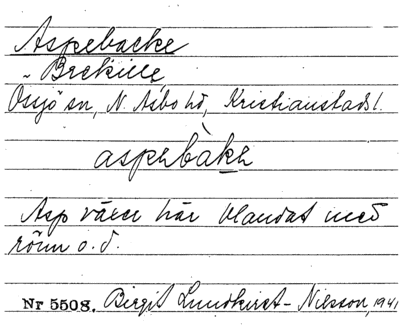 Aspebacke
Össjö sn, N. Åsbo hd, Kristianstads l.
aspebàke
Asp växer här blandat med
rönn o. d.
Nr 5508. Birgit Lundkvist-Nilsson, 1941